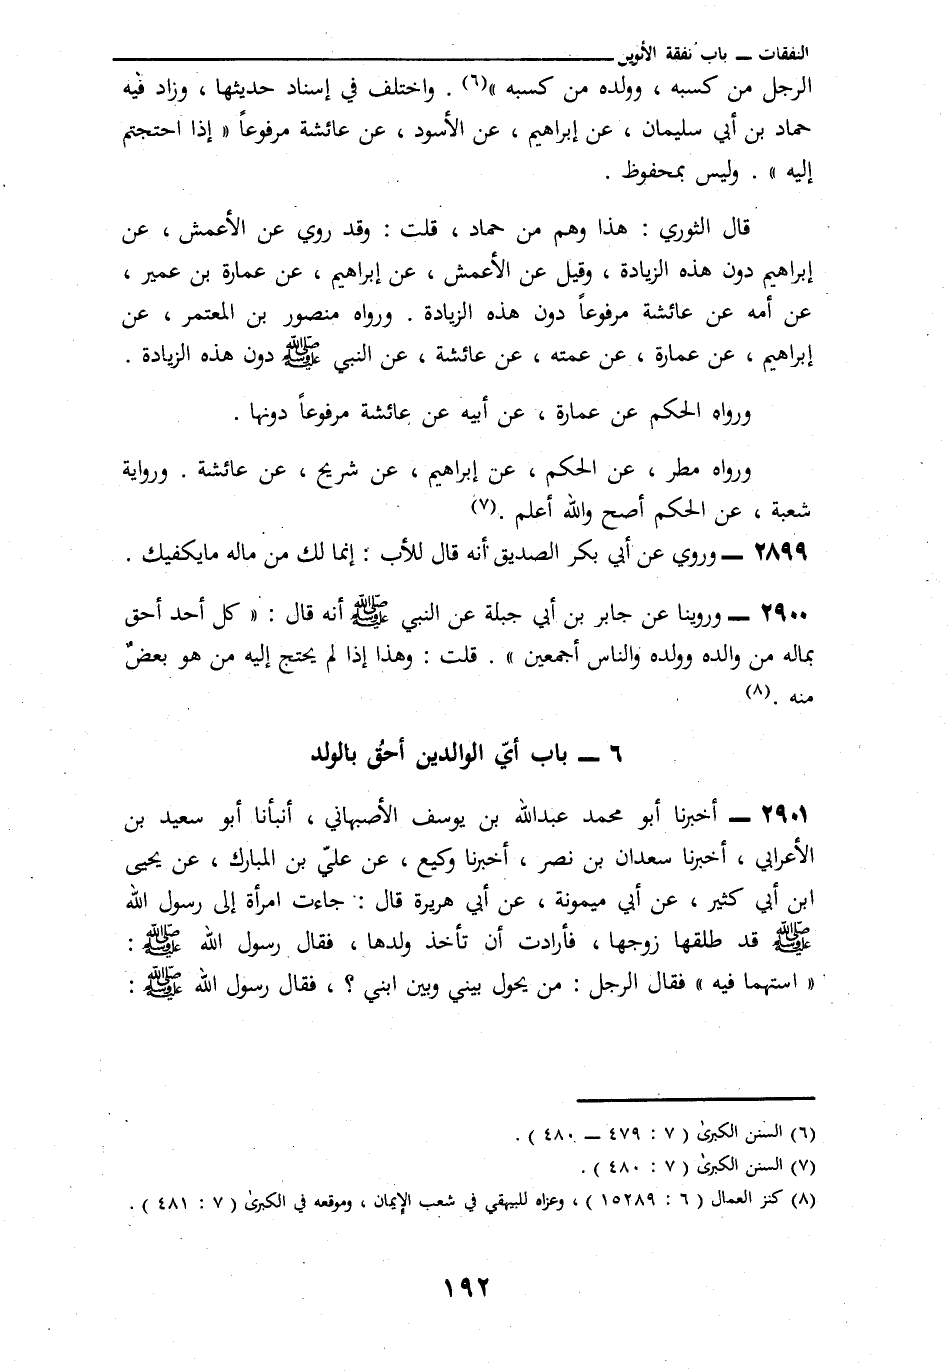 النفقات ــ باب نفقة الأبوين
الرجل من كسبه ، وولده من كسبه »(٦) . واختلف في إسناد حديثها ، وزاد فيه
حماد بن أبي سليمان ، عن إبراهيم ، عن الأسود ، عن عائشة مرفوعاً « إذا احتجتم
إليه » . وليس بمحفوظ .
قال الثوري : هذا وهم من حماد ، قلت : وقد روي عن الأعمش ، عن
إبراهيم دون هذه الزيادة ، وقيل عن الأعمش ، عن إبراهيم ، عن عمارة بن عمير ،
عن أمه عن عائشة مرفوعاً دون هذه الزيادة . ورواه منصور بن المعتمر ، عن
إبراهيم ، عن عمارة ، عن عمته ، عن عائشة ، عن النبي ﷺ دون هذه الزيادة .
ورواه الحكم عن عمارة ، عن أبيه عن عائشة مرفوعاً دونها .
ورواه مطر ، عن الحكم ، عن إبراهيم ، عن شريح ، عن عائشة . ورواية
شعبة ، عن الحكم أصح والله أعلم .(٧)
٢٨٩٩ ــ وروي عن أبي بكر الصديق أنه قال للأب : إنما لك من ماله مايكفيك .
٢٩٠٠ ــ وروينا عن جابر بن أبي جبلة عن النبي ﷺ أنه قال : « كل أحد أحق
بماله من والده وولده والناس أجمعين » . قلت : وهذا إذا لم يحتج إليه من هو بعضٌ
منه .(٨)
٦ ــ باب أيّ الوالدين أحقُ بالولد
٢٩٠١ ــ أخبرنا أبو محمد عبدالله بن يوسف الأصبهاني ، أنبأنا أبو سعيد بن
الأعرابي ، أخبرنا سعدان بن نصر ، أخبرنا وكيع ، عن عليّ بن المبارك ، عن يحيى
ابن أبي كثير ، عن أبي ميمونة ، عن أبي هريرة قال : جاءت امرأة إلى رسول الله
ﷺ قد طلقها زوجها ، فأرادت أن تأخذ ولدها ، فقال رسول الله ﷺ :
« استهما فيه » فقال الرجل : من يحول بيني وبين ابني ؟ ، فقال رسول الله ﷺ :
(٦) السنن الكبرىٰ ( ٧ : ٤٧٩ ــ ٤٨٠ ) .
(٧) السنن الكبرىٰ ( ٧ : ٤٨٠ ) .
(٨) كنز العمال ( ٦ : ١٥٢٨٩ ) ، وعزاه للبيهقي في شعب الإيمان ، وموقعه في الكبرىٰ ( ٧ : ٤٨١ ) .
١٩٢